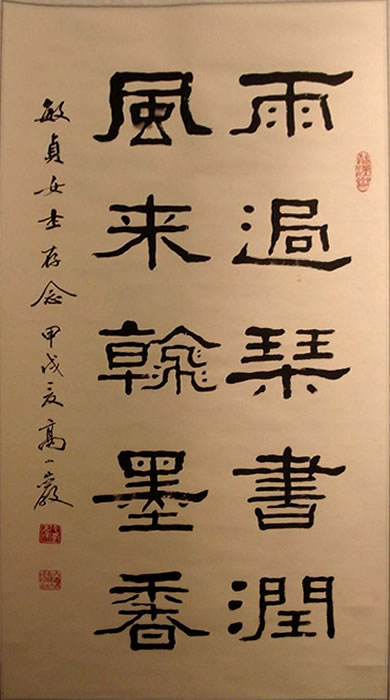 雨過琹書潤
風来翰墨香
敏貞女士存念甲戌夏高一巖